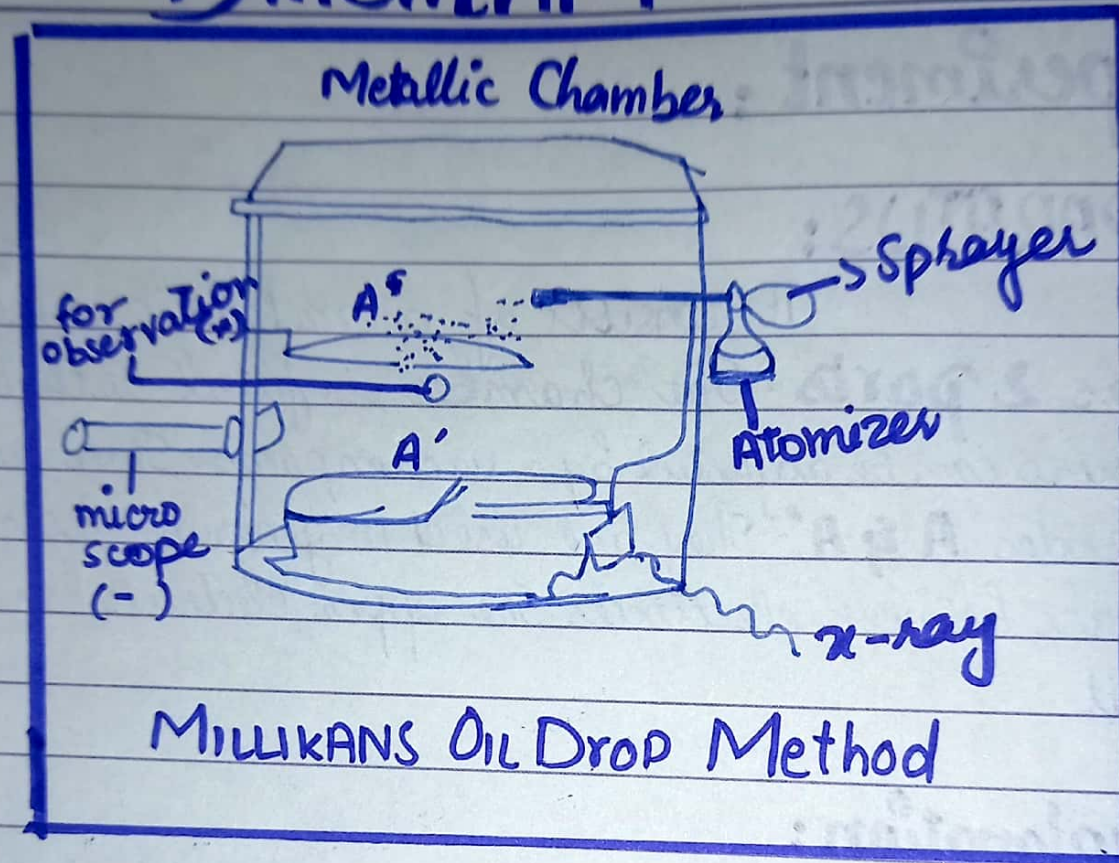 Metallic Chamber
Sprayer
for
observation
(+)
A
Atomizer
A'
micro
scope
(-)
x-ray
MILLIKANS OIL DROP Method